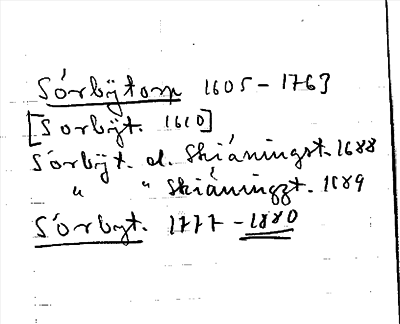 Sórbÿtorp 1605 – 1763
[Sorbÿt. 1610]
Sórbÿt. el. Skiáningst. 1688
" " Skiáningzt. 1689
Sórbyt. 1777 – 1880